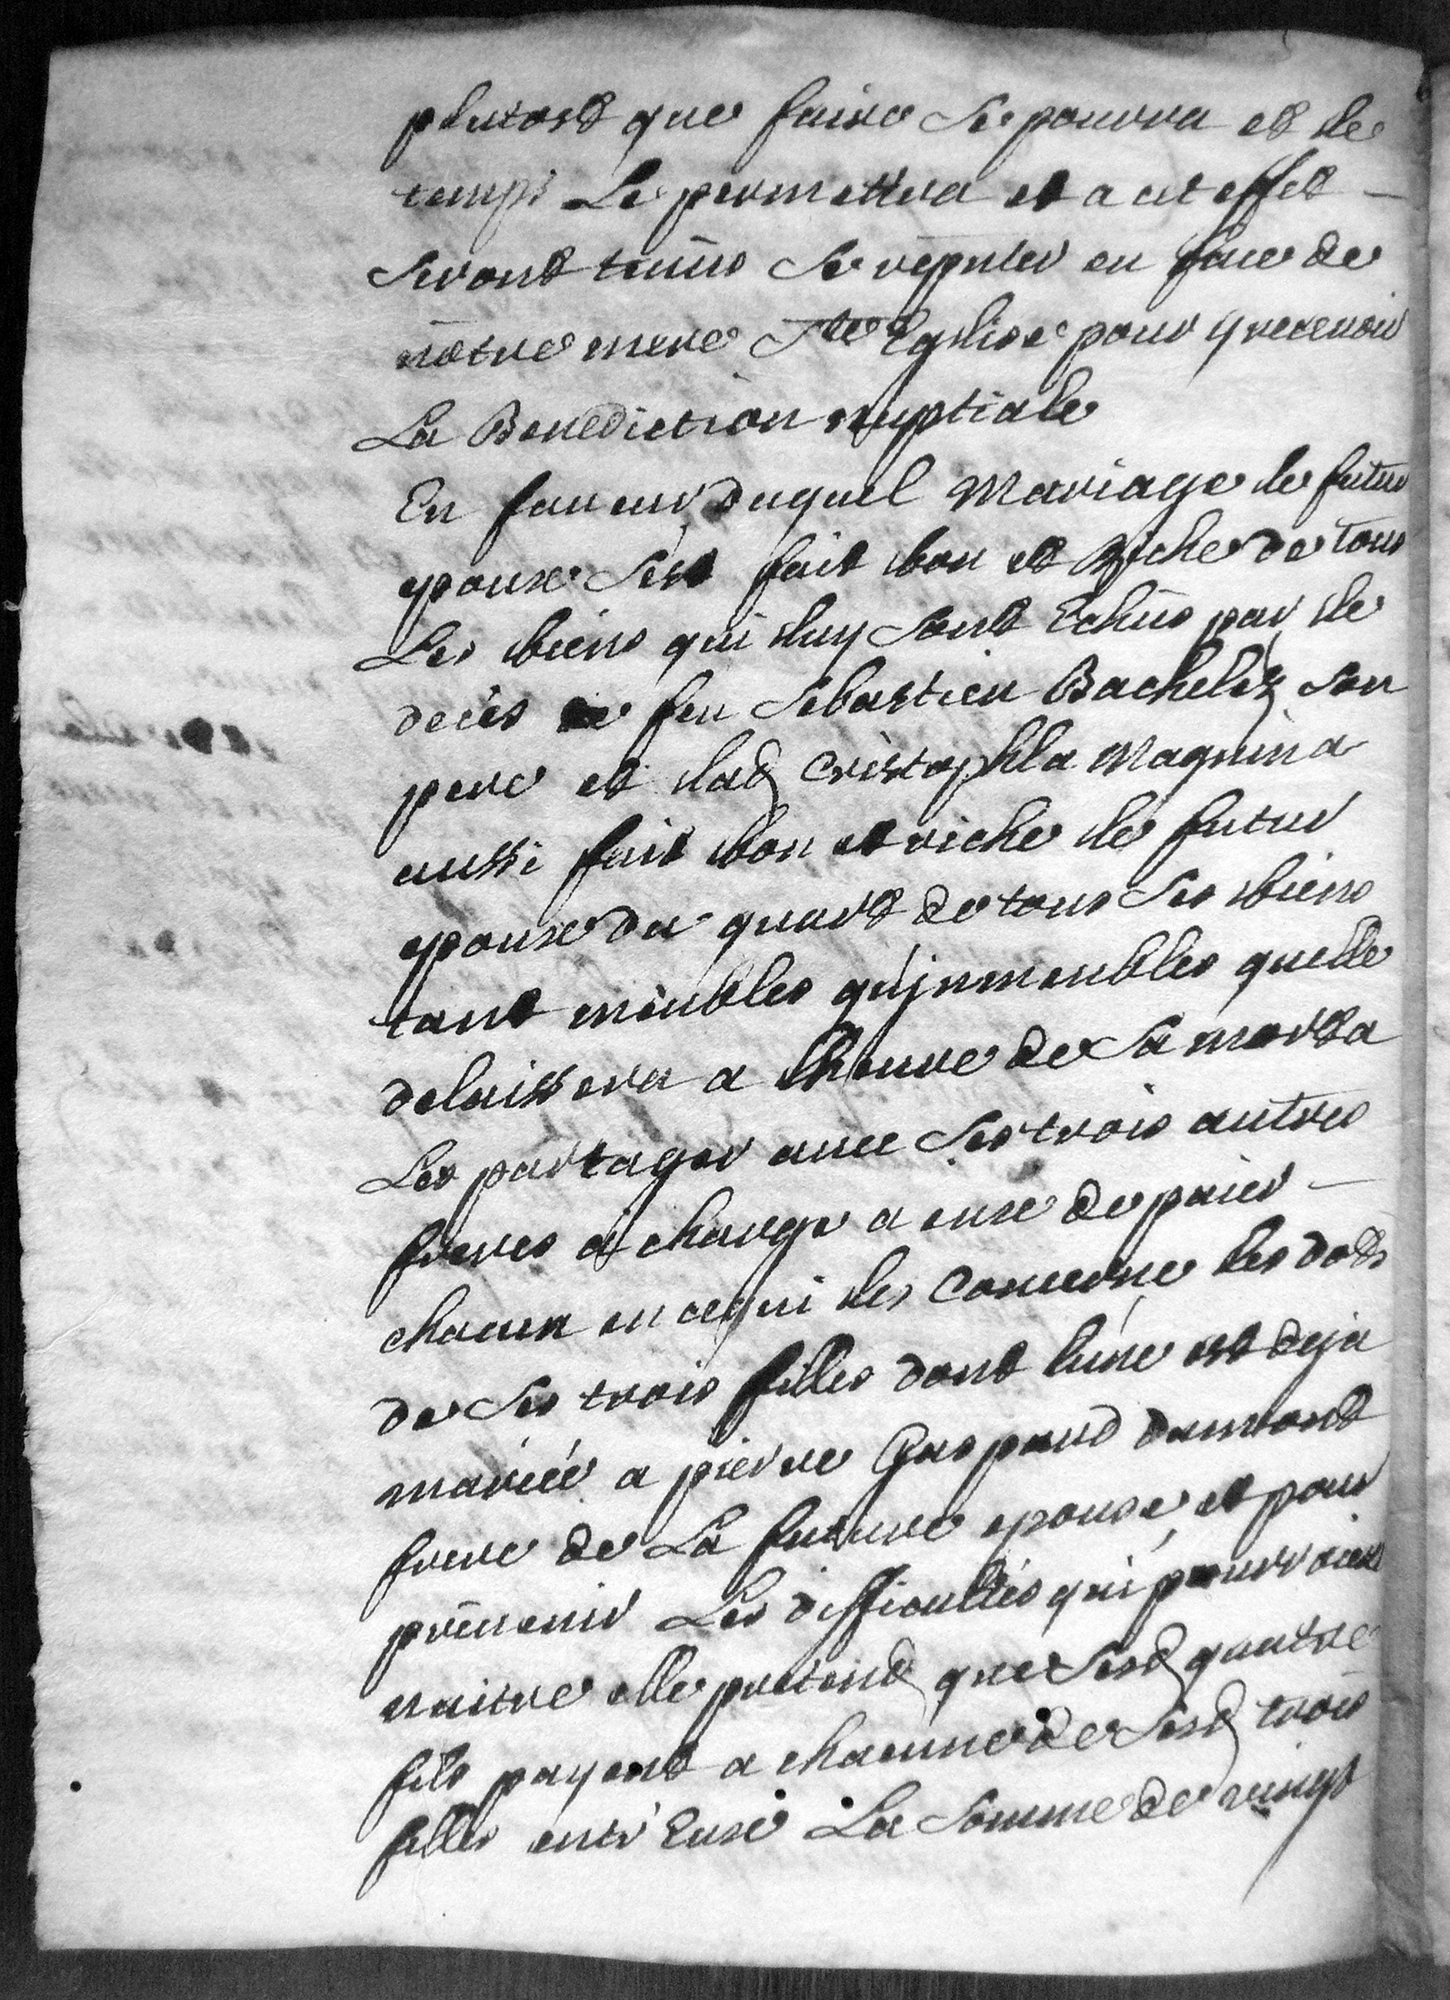 plutost que faire se pourra et le
temps Le permettra et a cet effet
seront tenus se repnter en face de
nôtre mere Ste Eglise pour y recevoir
La Benediction nuptiale
En faveur duquel Mariage le futur
epoux s'est fait bon et Riche de tous
Les biens qui luy sont Echus par le
decès de feu Sebastien Bachelez son
pere et lad Cristophla Magnin a
aussi fait bon et riche le futur
epoux du quart de tous ses biens
tant meubles qu'jmmeubles quelle
delaissera a lheure de sa mort a
Les partager avec ses trois autres
freres a charge a eux de paier
chacun en cequi les Concerne les dots
de ses trois filles dont lune est deja
mariée a pierre Gaspard dumont
frere de La future epouse et pour
prévenir Les difficultés qui pourroient
naitre elle pretend que sesd quatre
fils payent a chacune de sesd trois
filles entr'Eux La somme de vingt